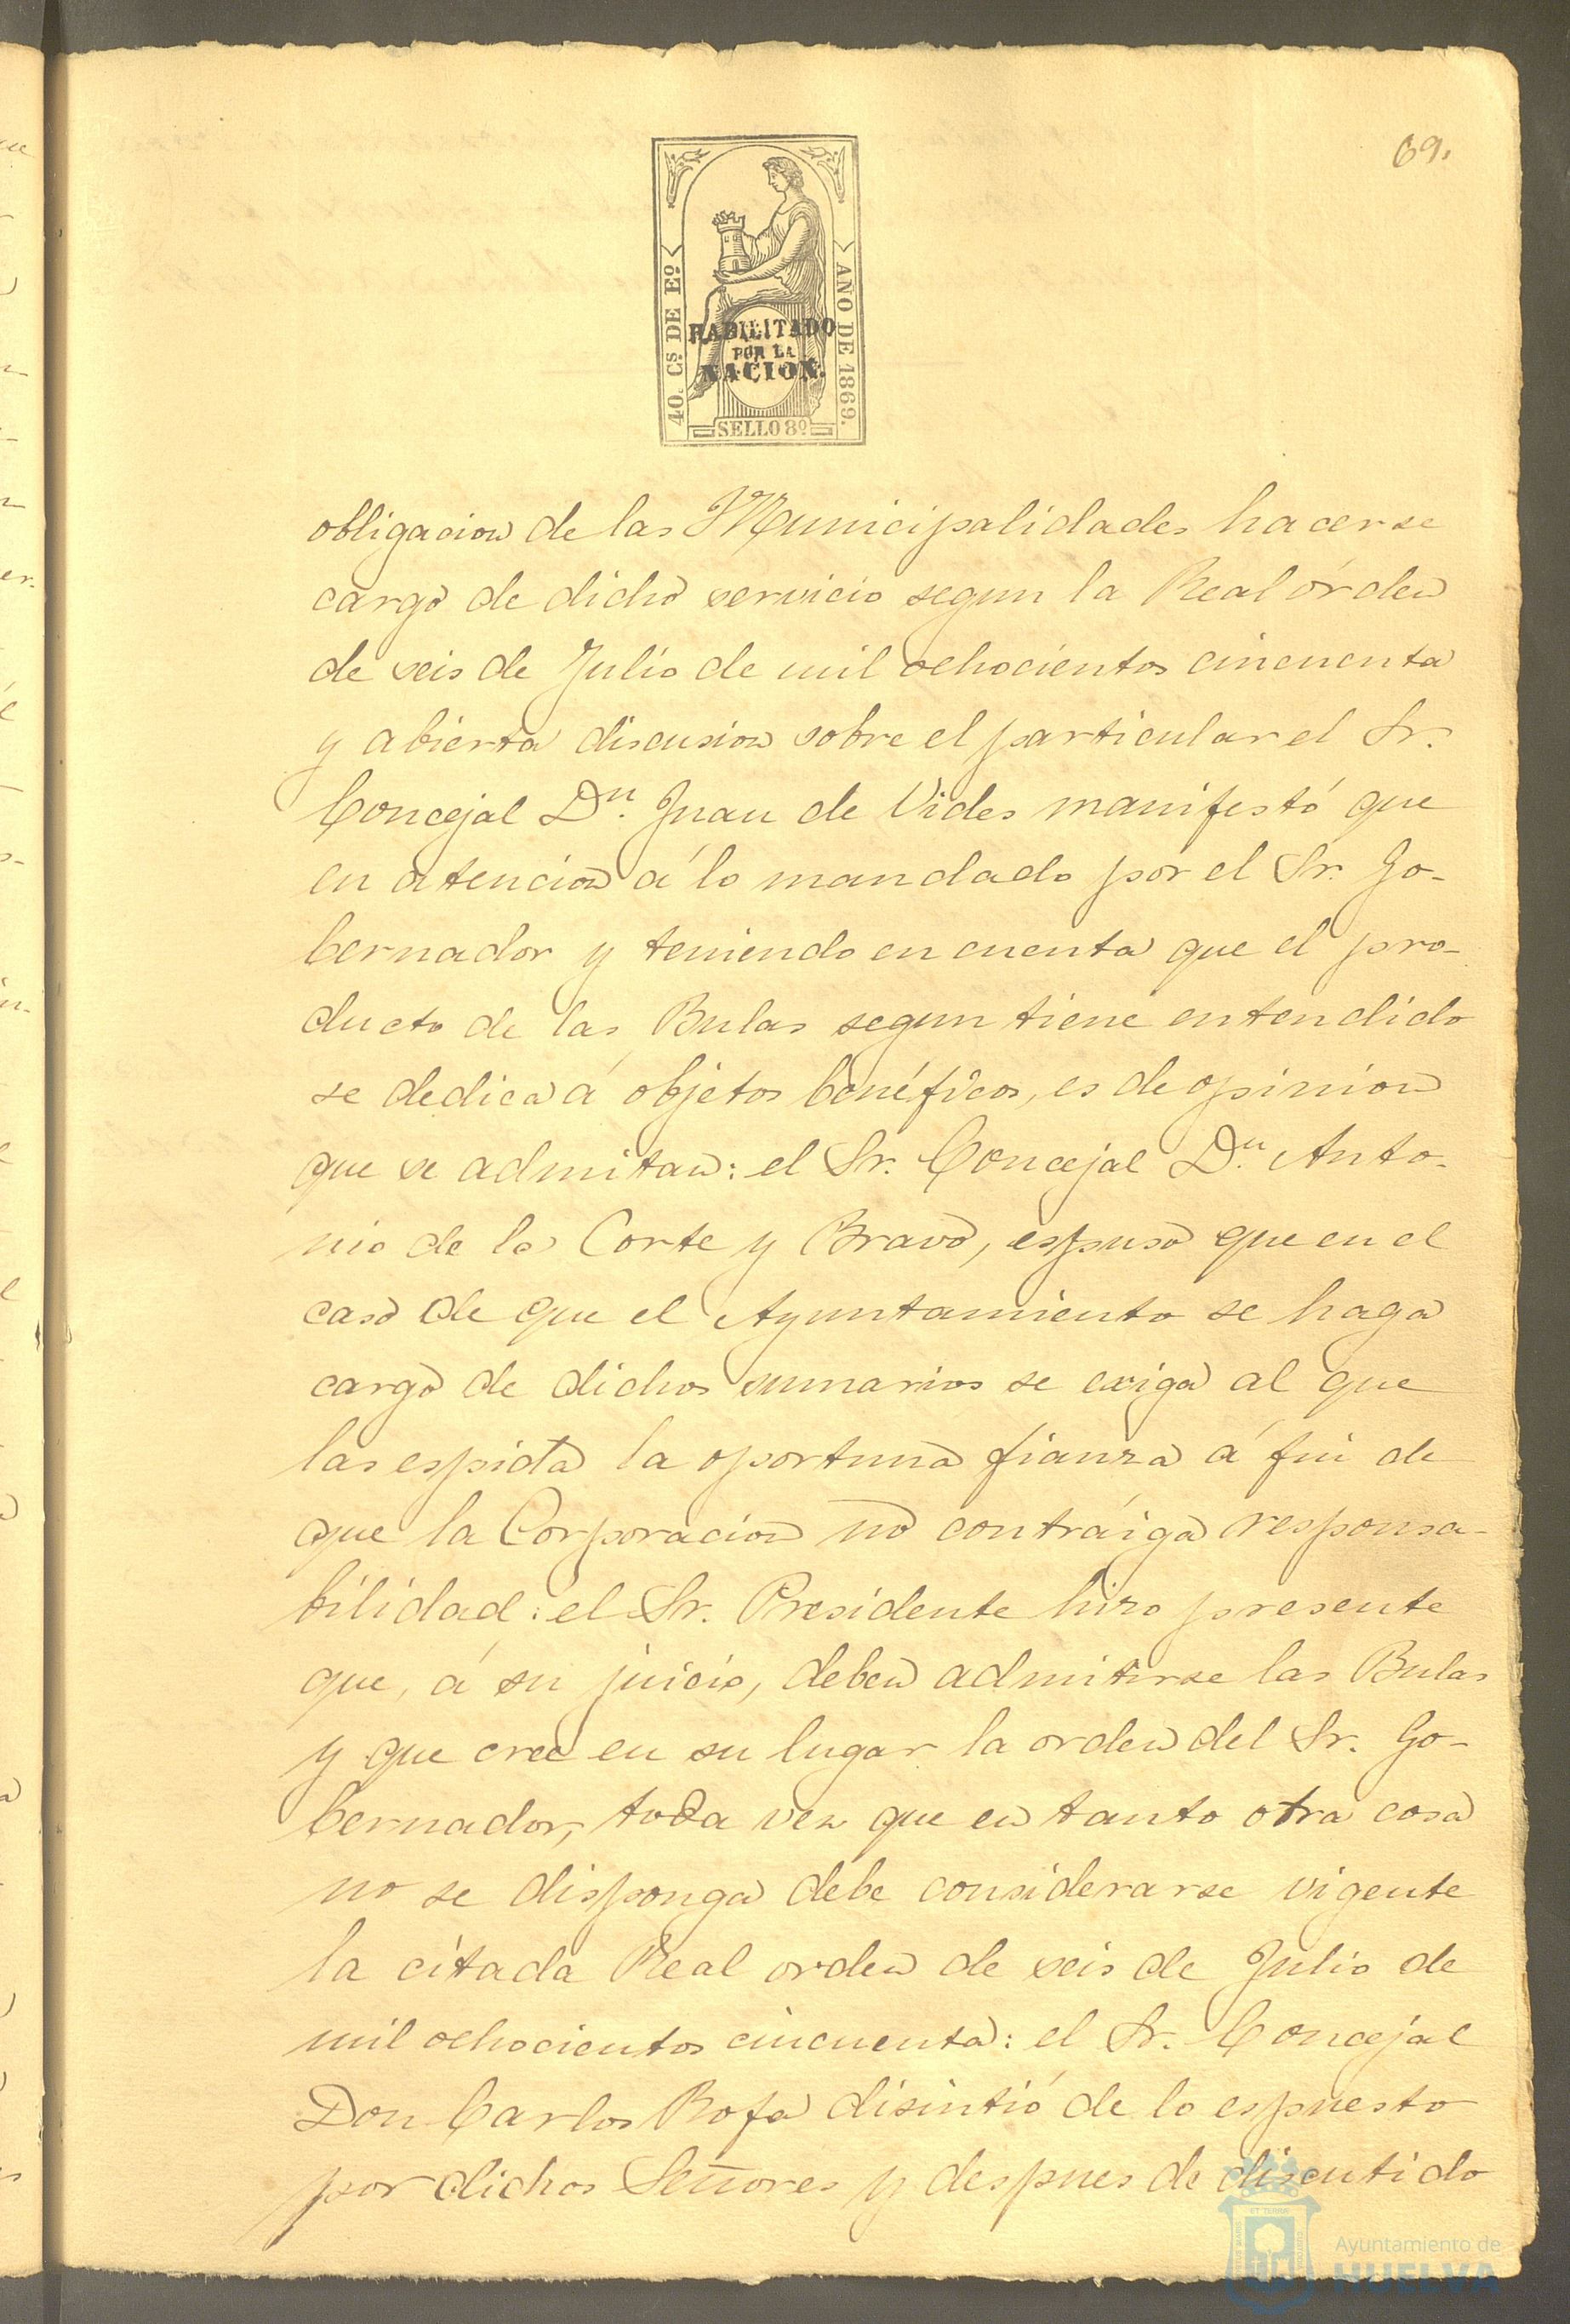 69.
40. Cs DE Eº
AÑO DE 1869.
HABILITADO
POR LA
NACION.
SELLO 8º
obligacion de las Municipalidades hacerse
cargo de dicho servicio segun la Real órden
de seis de Julio de mil ochocientos cincuenta
y abierta discusion sobre el particular el Sr.
Concejal Dn. Juan de Vides manifestó que
en atencion á lo mandado por el Sr. Go-
bernador y teniendo en cuenta que el pro-
ducto de las Bulas segun tiene entendido
se dedica á objetos benéficos, es de opinion
que se admitan: el Sr. Concejal Dn. Anto-
nio de la Corte y Bravo, espuso que en el
caso de que el Ayuntamiento se haga
cargo de dichos sumarios se exiga al que
las espida la oportuna fianza á fin de
que la Corporacion no contraiga responsa-
bilidad: el Sr. Presidente hizo presente
que, á su juicio, deben admitirse las Bulas
y que cree en su lugar la orden del Sr. Go-
bernador, toda vez que en tanto otra cosa
no se disponga debe considerarse vigente
la citada Real orden de seis de Julio de
mil ochocientos cincuenta: el Sr. Concejal
Don Carlos Rofa disintió de lo espuesto
por dichos Señores y despues de discutido
Ayuntamiento de
HUELVA